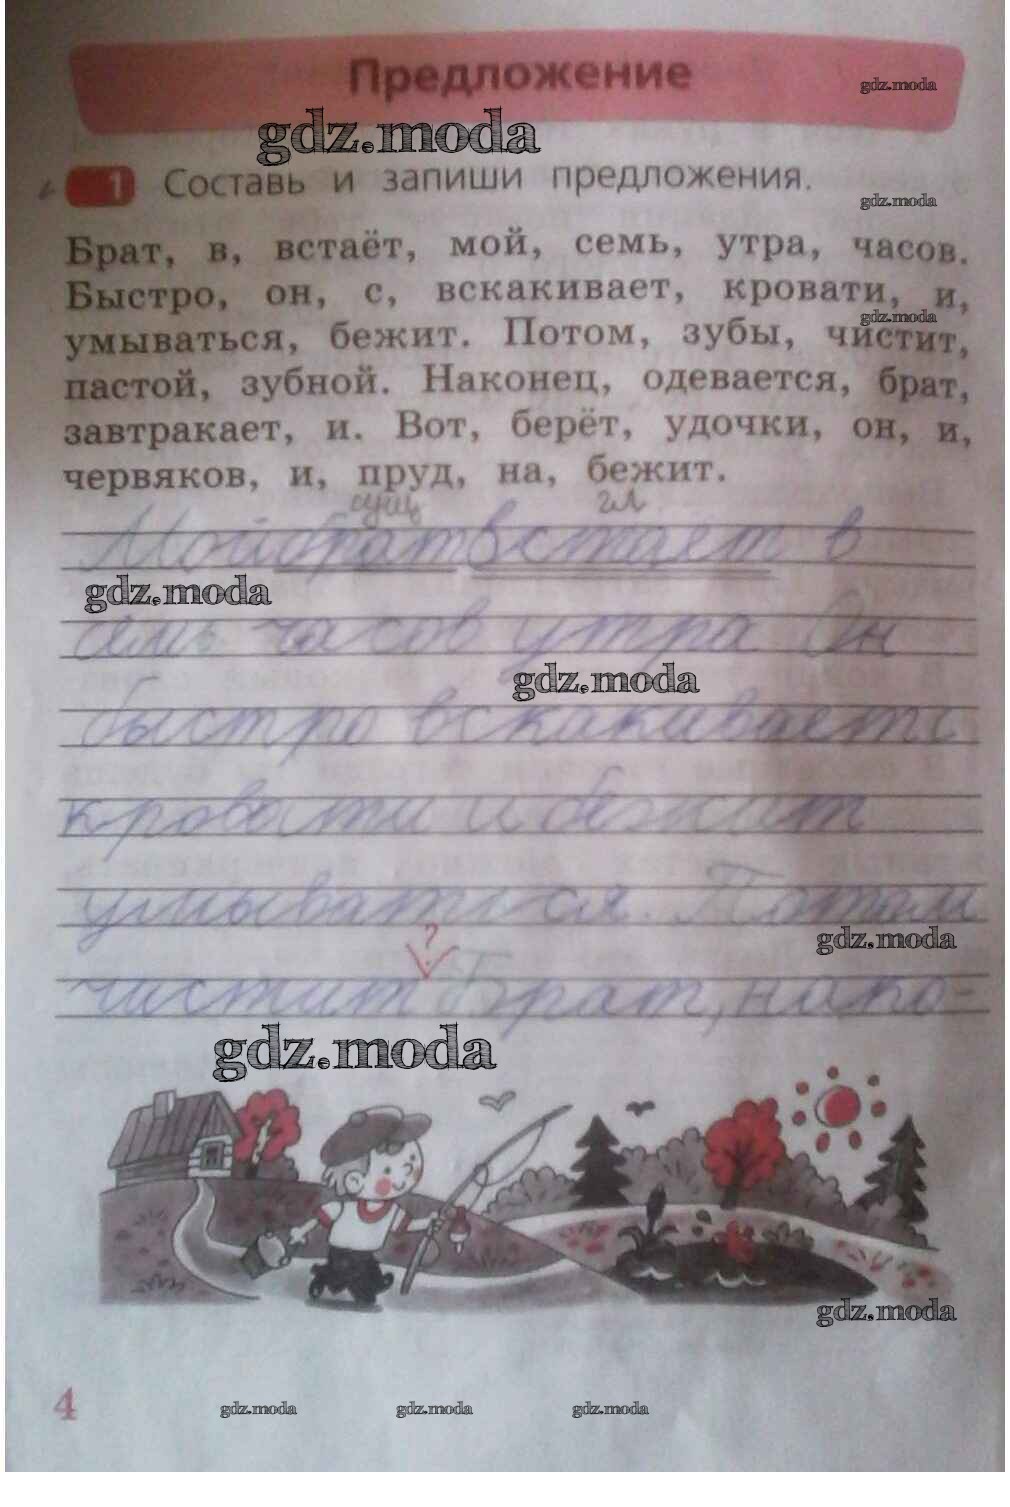 Предложение
gdz.moda
gdz.moda
1 Составь и запиши предложения.
gdz.moda
Брат, в, встаёт, мой, семь, утра, часов.
Быстро, он, с, вскакивает, кровати, и,
gdz.moda
умываться, бежит. Потом, зубы, чистит,
пастой, зубной. Наконец, одевается, брат,
завтракает, и. Вот, берёт, удочки, он, и,
червяков, и, пруд, на, бежит.
сущ гл.
Мой брат встает в
gdz.moda
семь часов утра Он
gdz.moda
быстро вскакивает с
кровати и бежит
умываться. Потом
gdz.moda
?
чистит Брат, нако-
gdz.moda
gdz.moda
4
gdz.moda gdz.moda gdz.moda